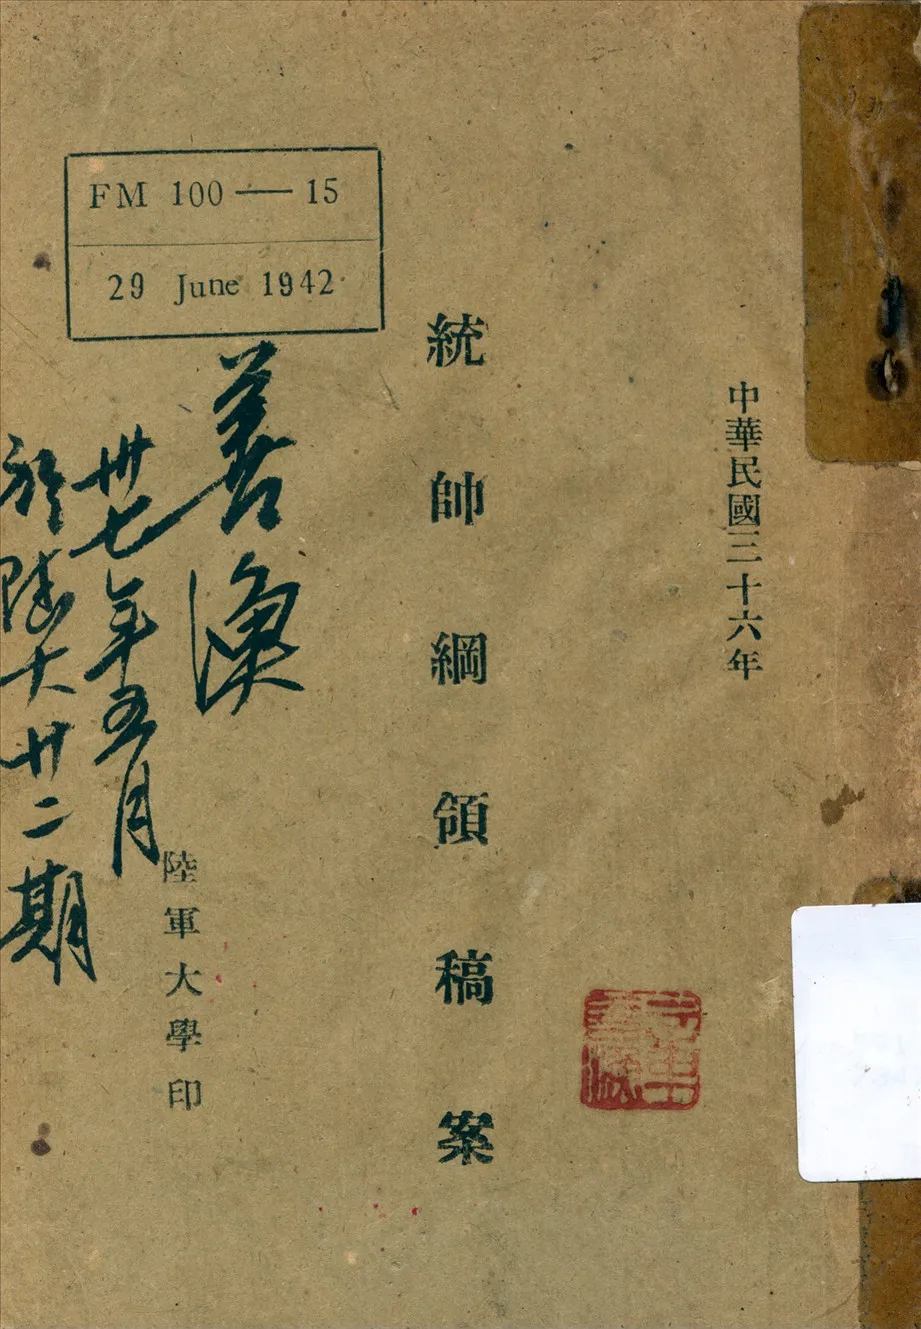 FM 100—15
29 June 1942
中華民國三十六年
統帥綱領稿案
陸軍大學印
善渙
卅七年五月
於陸大廿二期